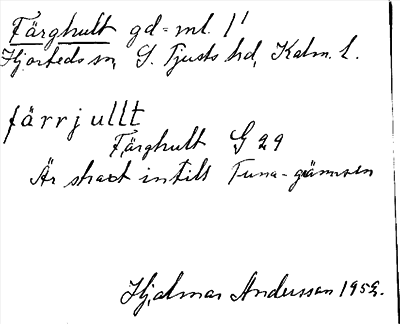 Färghult gd = ml. 1'
Hjorteds sn, S. Tjusts hd, Kalm. l.
färrjullt
Färghult G 29
Är strax intill Tuna-gränsen
Hjalmar Andersson 1952.